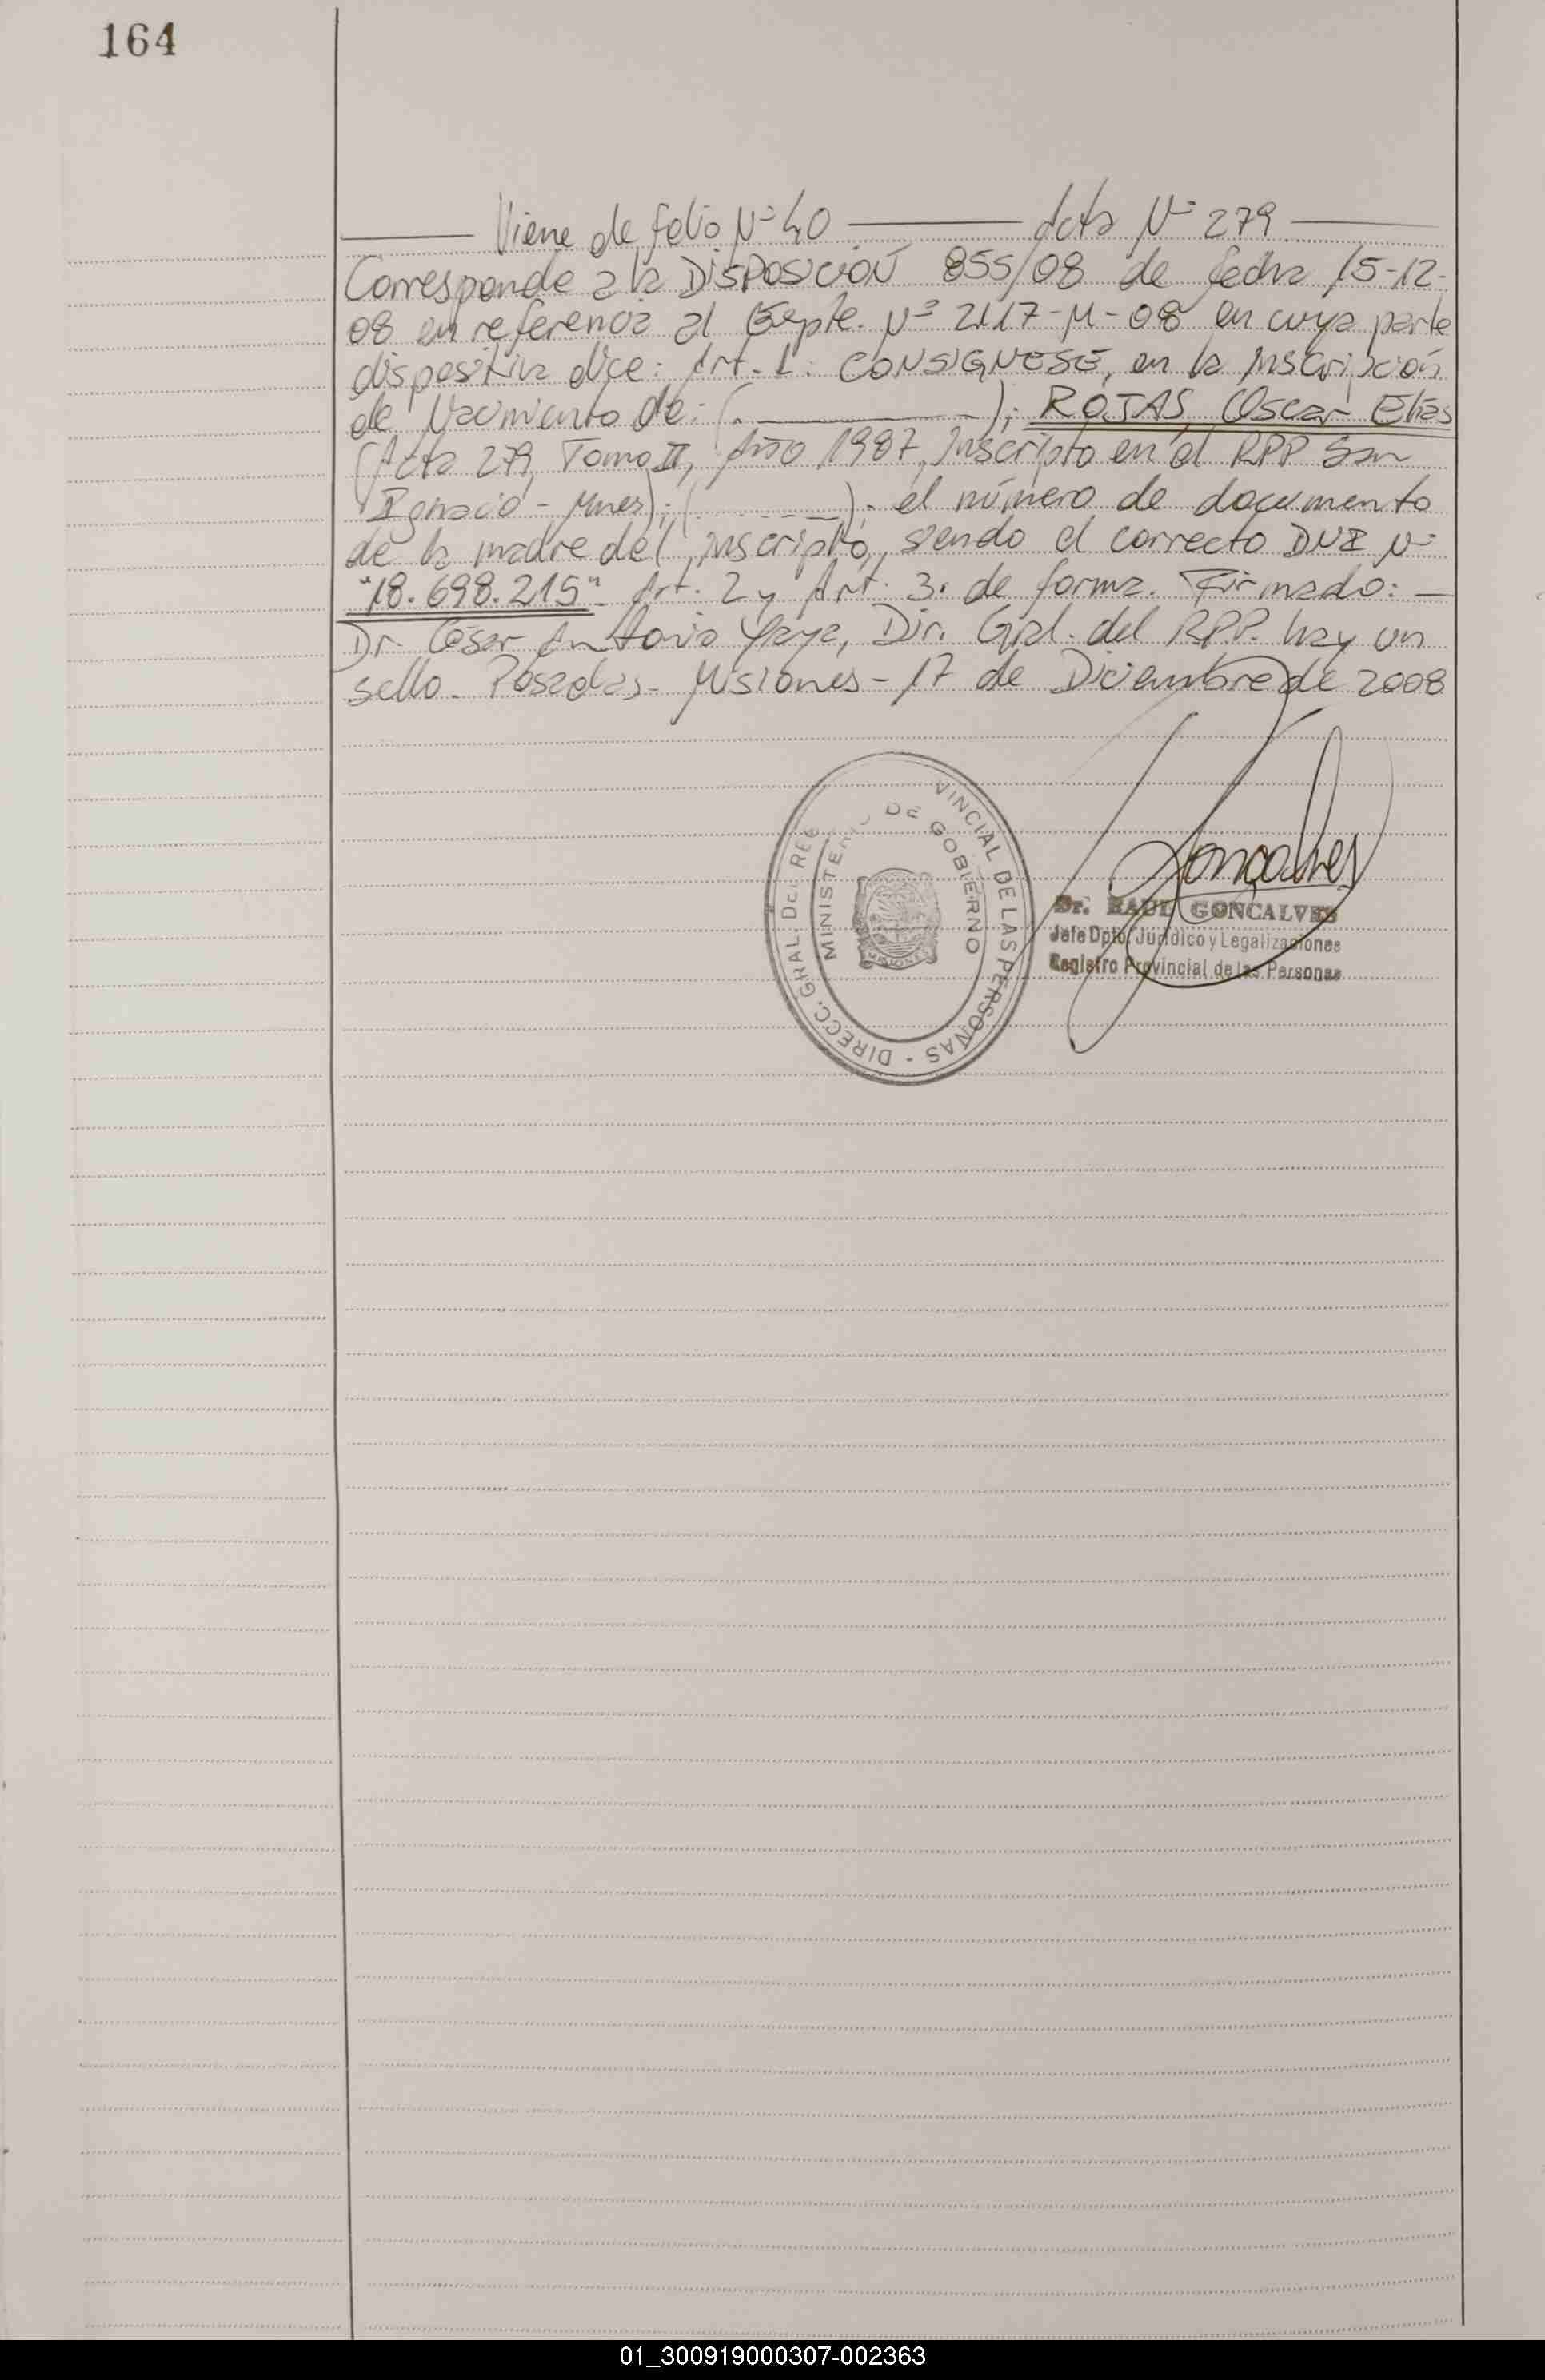 164
Viene de folio Nº 40 Acta Nº 279
Corresponde a la DISPOSICIÓN 855/08 de fecha 15-12-
08 en referencia al Expte. Nº 2117-M-08 en cuya parte
dispositiva dice: Art. 1: CONSIGNESE, en la inscripción
de Nacimiento de: (. ———); ROJAS, Oscar Elías
(Acta 279, Tomo II, Año 1987, Inscripto en el RPP San
Ignacio - Mnes); (. ———); el número de documento
de la madre del inscripto, siendo el correcto DNI Nº
"18.698.215". Art. 2 y Art. 3. de forma. Firmado: —
Dr. César Antonio Dir. Gral. del RPP. hay un
sello. Posadas - Misiones - 17 de Diciembre de 2008
DIRECC. GRAL. DEL REG VINCIAL DE LAS PERSONAS -
MINISTERIO DE GOBIERNO
MISIONES
Goncalves
Dr. RAUL GONCALVES
Jefe Dpto. Jurídico y Legalizaciones
Registro Provincial de las Personas
01_300919000307-002363